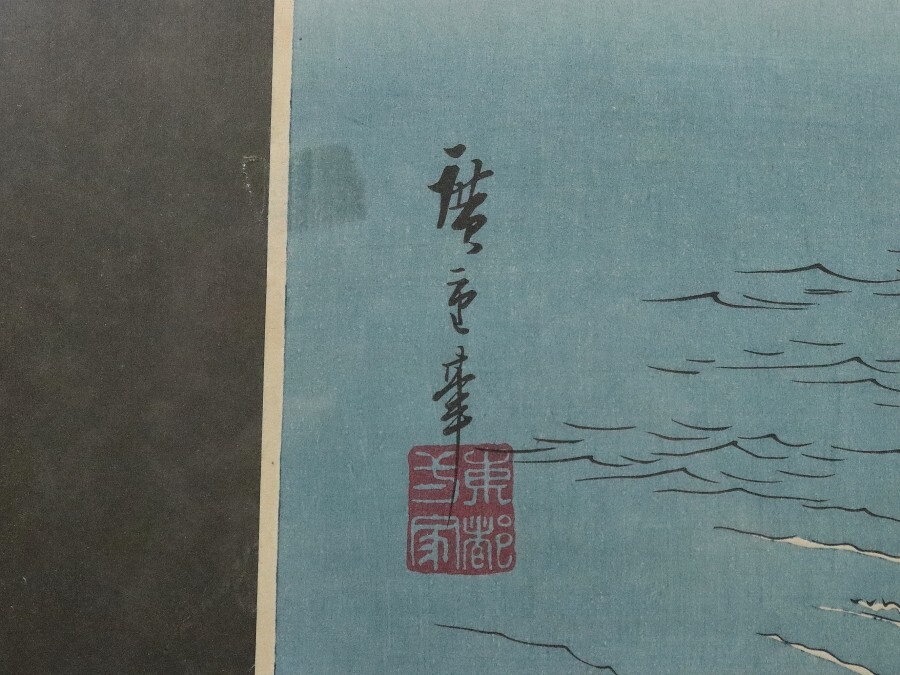 廣重筆
東都
家